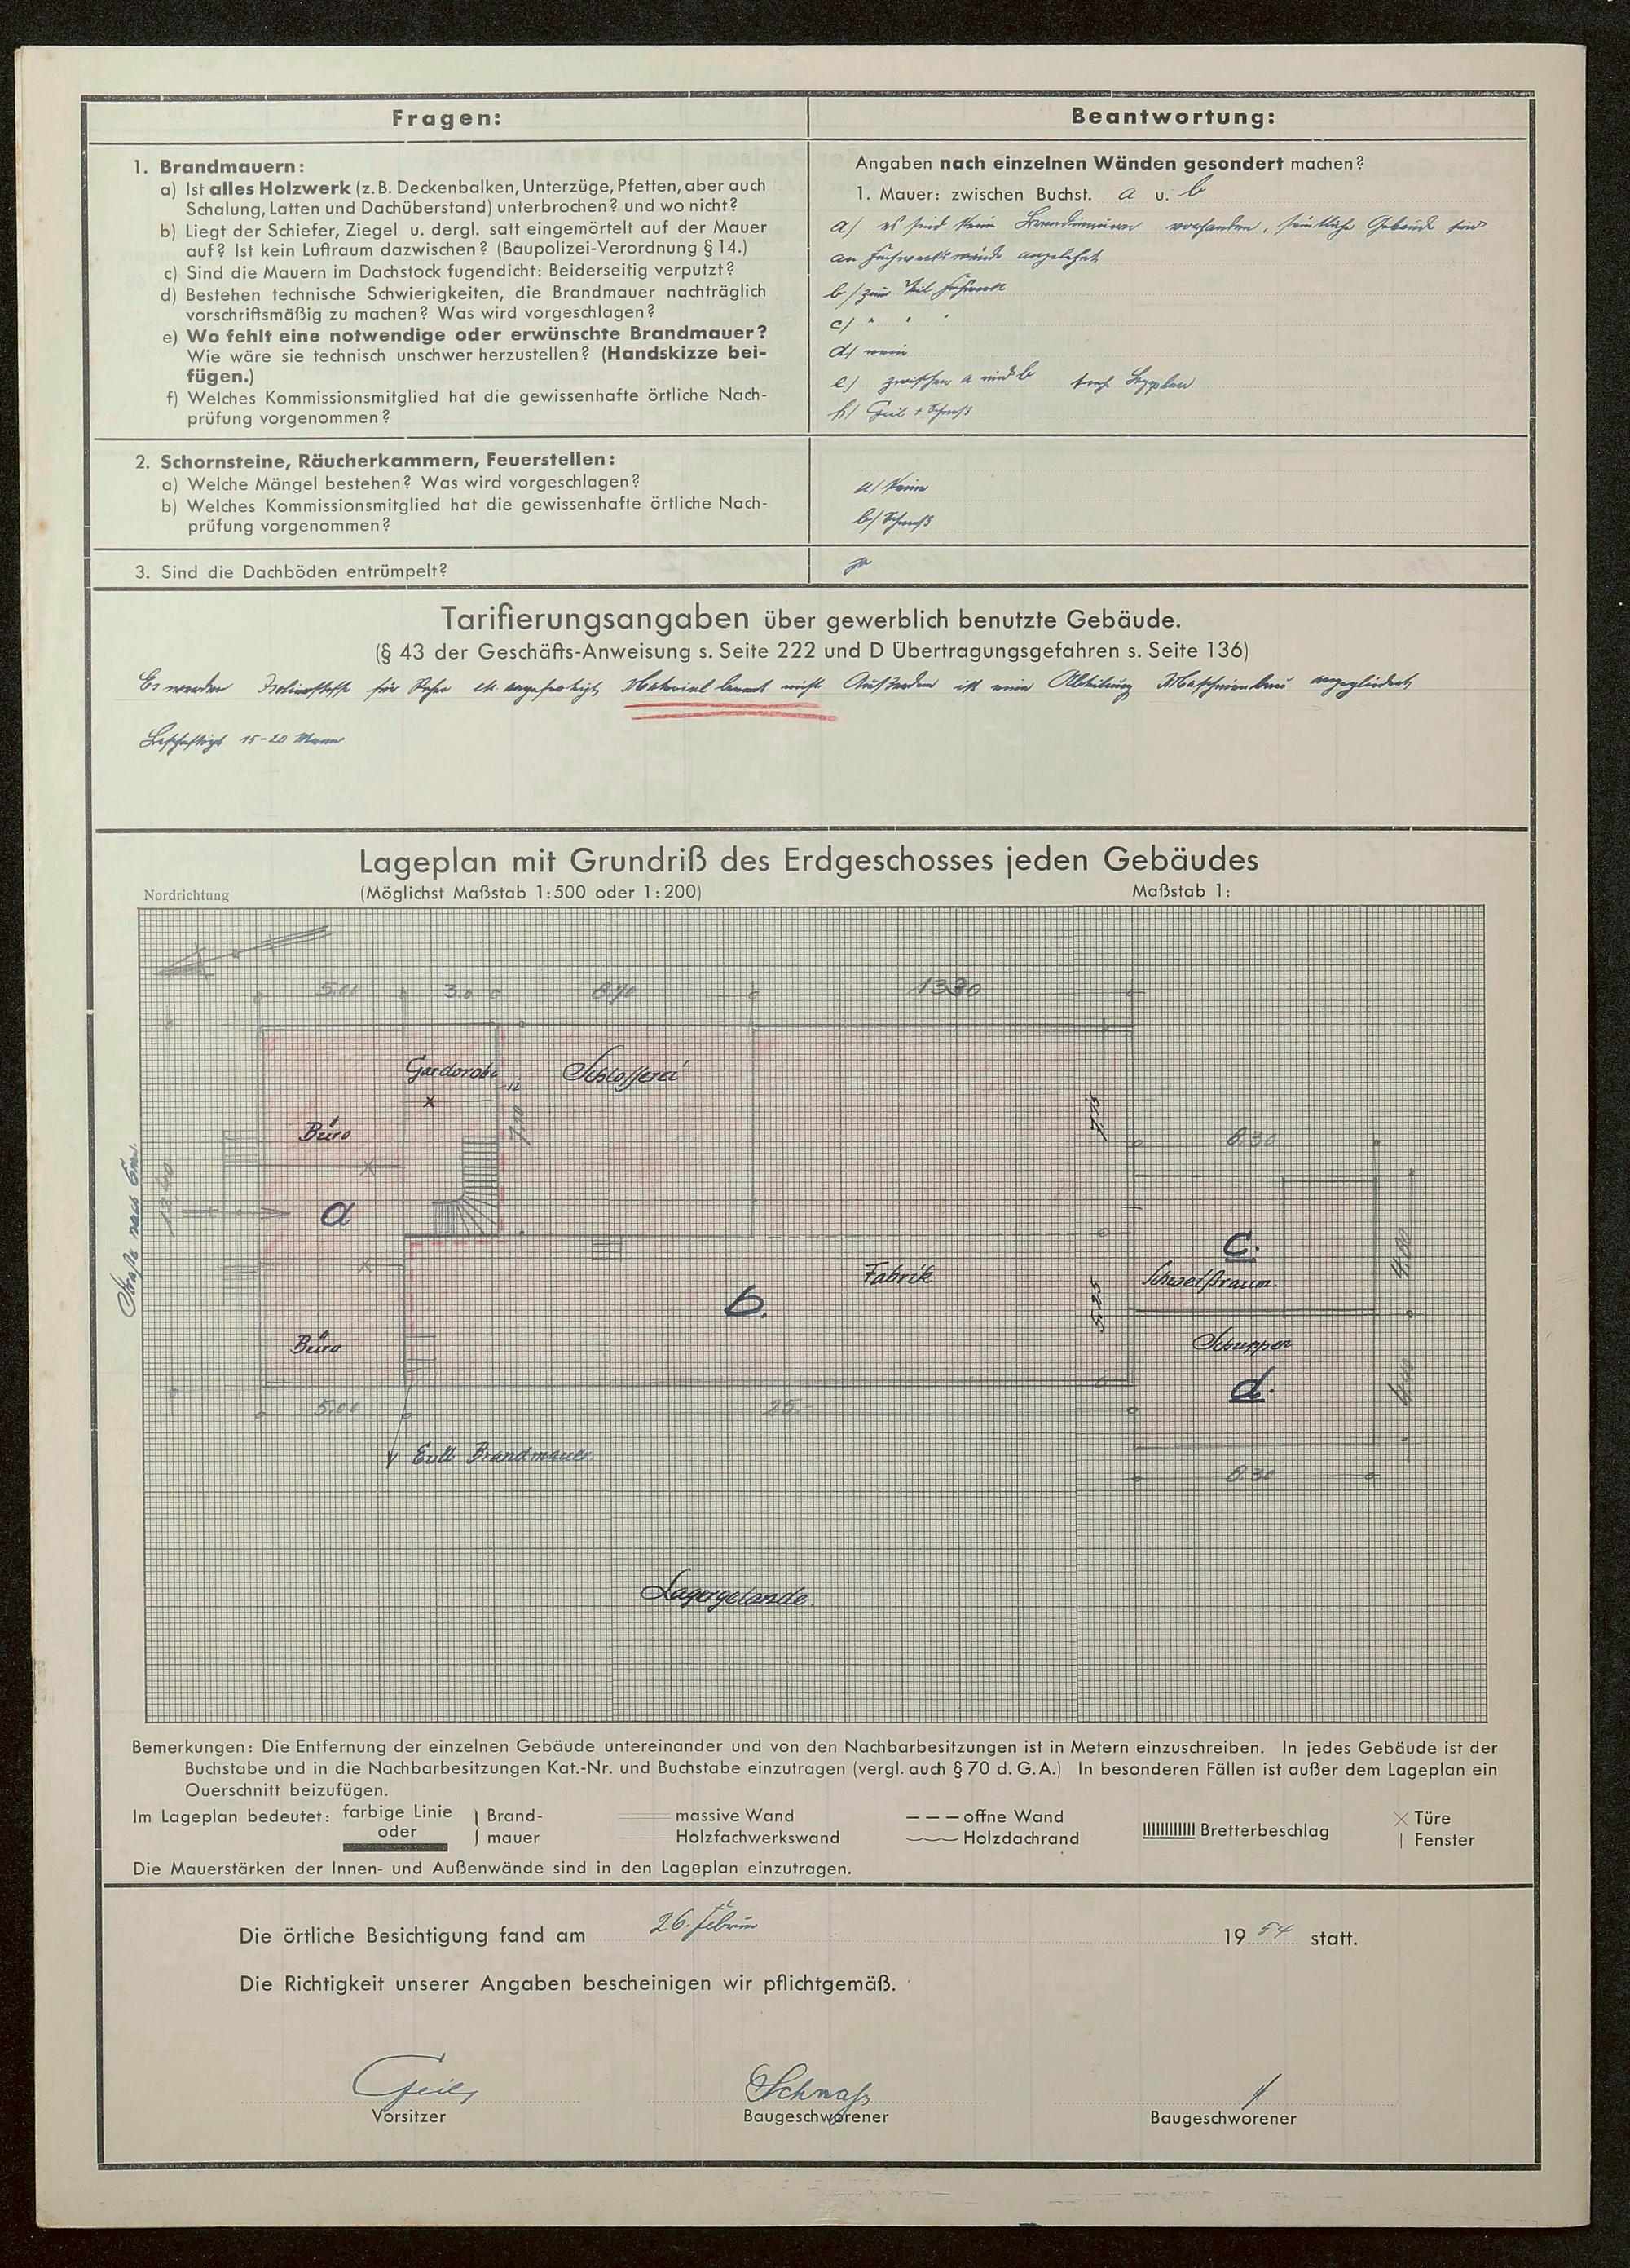 Fragen:
Beantwortung:
1. Brandmauern:
a) Ist alles Holzwerk (z.B. Deckenbalken, Unterzüge, Pfetten, aber auch
Schalung, Latten und Dachüberstand) unterbrochen? und wo nicht?
b) Liegt der Schiefer, Ziegel u. dergl. satt eingemörtelt auf der Mauer
auf? Ist kein Luftraum dazwischen? (Baupolizei-Verordnung § 14.)
c) Sind die Mauern im Dachstock fugendicht: Beiderseitig verputzt?
d) Bestehen technische Schwierigkeiten, die Brandmauer nachträglich
vorschriftsmäßig zu machen? Was wird vorgeschlagen?
e) Wo fehlt eine notwendige oder erwünschte Brandmauer?
Wie wäre sie technisch unschwer herzustellen? (Handskizze bei-
fügen.)
f) Welches Kommissionsmitglied hat die gewissenhafte örtliche Nach-
prüfung vorgenommen?
Angaben nach einzelnen Wänden gesondert machen?
1. Mauer: zwischen Buchst. a u. b
a) es sind keine Brandmauern vorhanden, sämtliche Gebäude sind
an Fachwerkswände angelehnt
b) zum Teil
c) " " "
d) nein
e) zwischen a und b Lageplan
f) Geil + Schnaß
2. Schornsteine, Räucherkammern, Feuerstellen:
a) Welche Mängel bestehen? Was wird vorgeschlagen?
b) Welches Kommissionsmitglied hat die gewissenhafte örtliche Nach-
prüfung vorgenommen?
a) keine
b) Schnaß
3. Sind die Dachböden entrümpelt?
ja
Tarifierungsangaben über gewerblich benutzte Gebäude.
(§ 43 der Geschäfts-Anweisung s. Seite 222 und D Übertragungsgefahren s. Seite 136)
Es werden Isolierstoffe für Rohre etc. angefertigt, Material brennt nicht. Außerdem ist eine Abteilung Maschinenbau angegliedert
Beschäftigt 15-20 Mann
Lageplan mit Grundriß des Erdgeschosses jeden Gebäudes
Nordrichtung
(Möglichst Maßstab 1:500 oder 1:200)
Maßstab 1:
5.00
3.0
13.30
Gardorobe
Schlosserei
12
Büro
7.10
7.75
6.30
Straße nach
a
c.
Schweißraum
4.60
Fabrik
b.
5.25
Büro
Schuppen
d.
4.40
5.00
25.-
Evtl. Brandmauer.
6.30
Lagergelände.
Bemerkungen: Die Entfernung der einzelnen Gebäude untereinander und von den Nachbarbesitzungen ist in Metern einzuschreiben. In jedes Gebäude ist der
Buchstabe und in die Nachbarbesitzungen Kat.-Nr. und Buchstabe einzutragen (vergl. auch § 70 d. G.A.) In besonderen Fällen ist außer dem Lageplan ein
Querschnitt beizufügen.
Im Lageplan bedeutet: farbige Linie oder Brand-mauer
massive Wand
Holzfachwerkswand
offne Wand
Holzdachrand
Bretterbeschlag
Türe
Fenster
Die Mauerstärken der Innen- und Außenwände sind in den Lageplan einzutragen.
Die örtliche Besichtigung fand am 26. Februar 1954 statt.
Die Richtigkeit unserer Angaben bescheinigen wir pflichtgemäß.
Geil
Schnaß
Vorsitzer
Baugeschworener
Baugeschworener